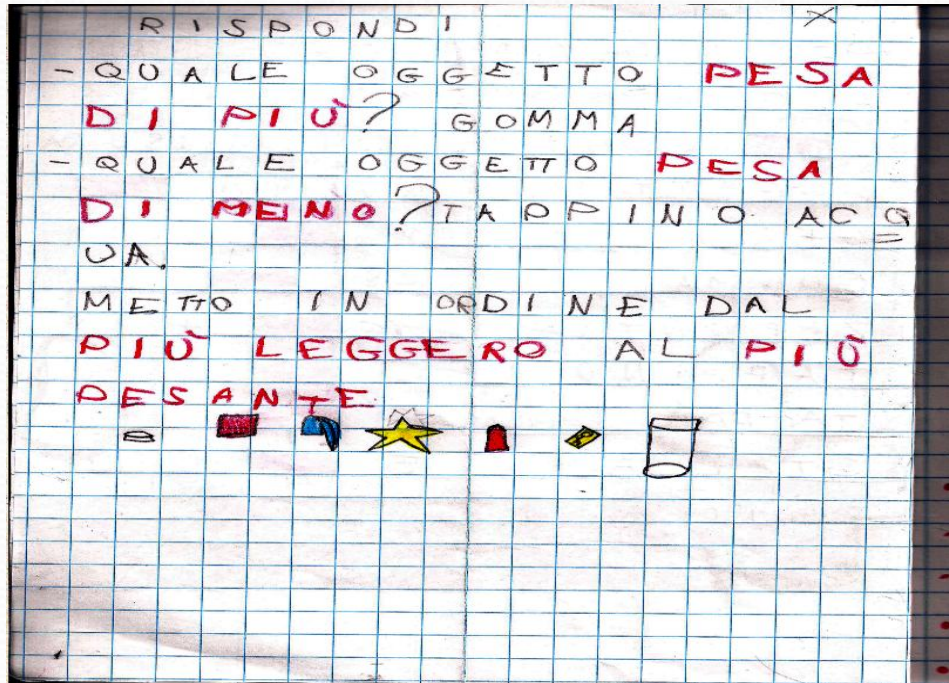 RISPONDI
- QUALE OGGETTO PESA
DI PIÙ? GOMMA
- QUALE OGGETTO PESA
DI MENO? TAPPINO ACQ
UA.
METTO IN ORDINE DAL
PIÙ LEGGERO AL PIÙ
PESANTE.